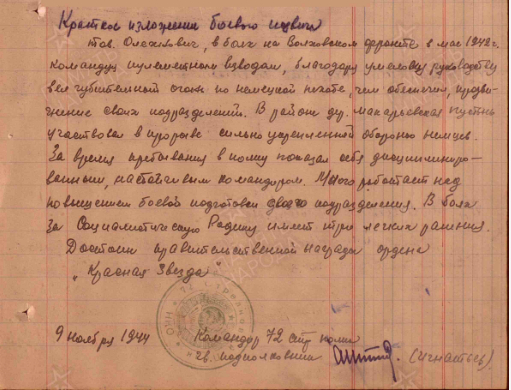 Краткое изложение боевого подвига
тов. Олехнович, в боях на Волховском фронте в мае 1942 г.
командуя пулеметным взводом, благодаря умелому руководству
вел губительный огонь по немецкой пехоте, чем обеспечил продви-
жение своих подразделений. В районе дер. Макарьевская пустынь
участвовал в прорыве сильно укрепленной обороны немцев.
За время пребывания в полку показал себя дисциплиниро-
ванным, настойчивым командиром. Много работает над
повышением боевой подготовки своего подразделения. В боях
за Социалистическую Родину имеет три легких ранения.
Достоин правительственной награды ордена
"Красная Звезда"
9 ноября 1944 Командир 72 стр полка
гв. подполковник (Игнатьев)